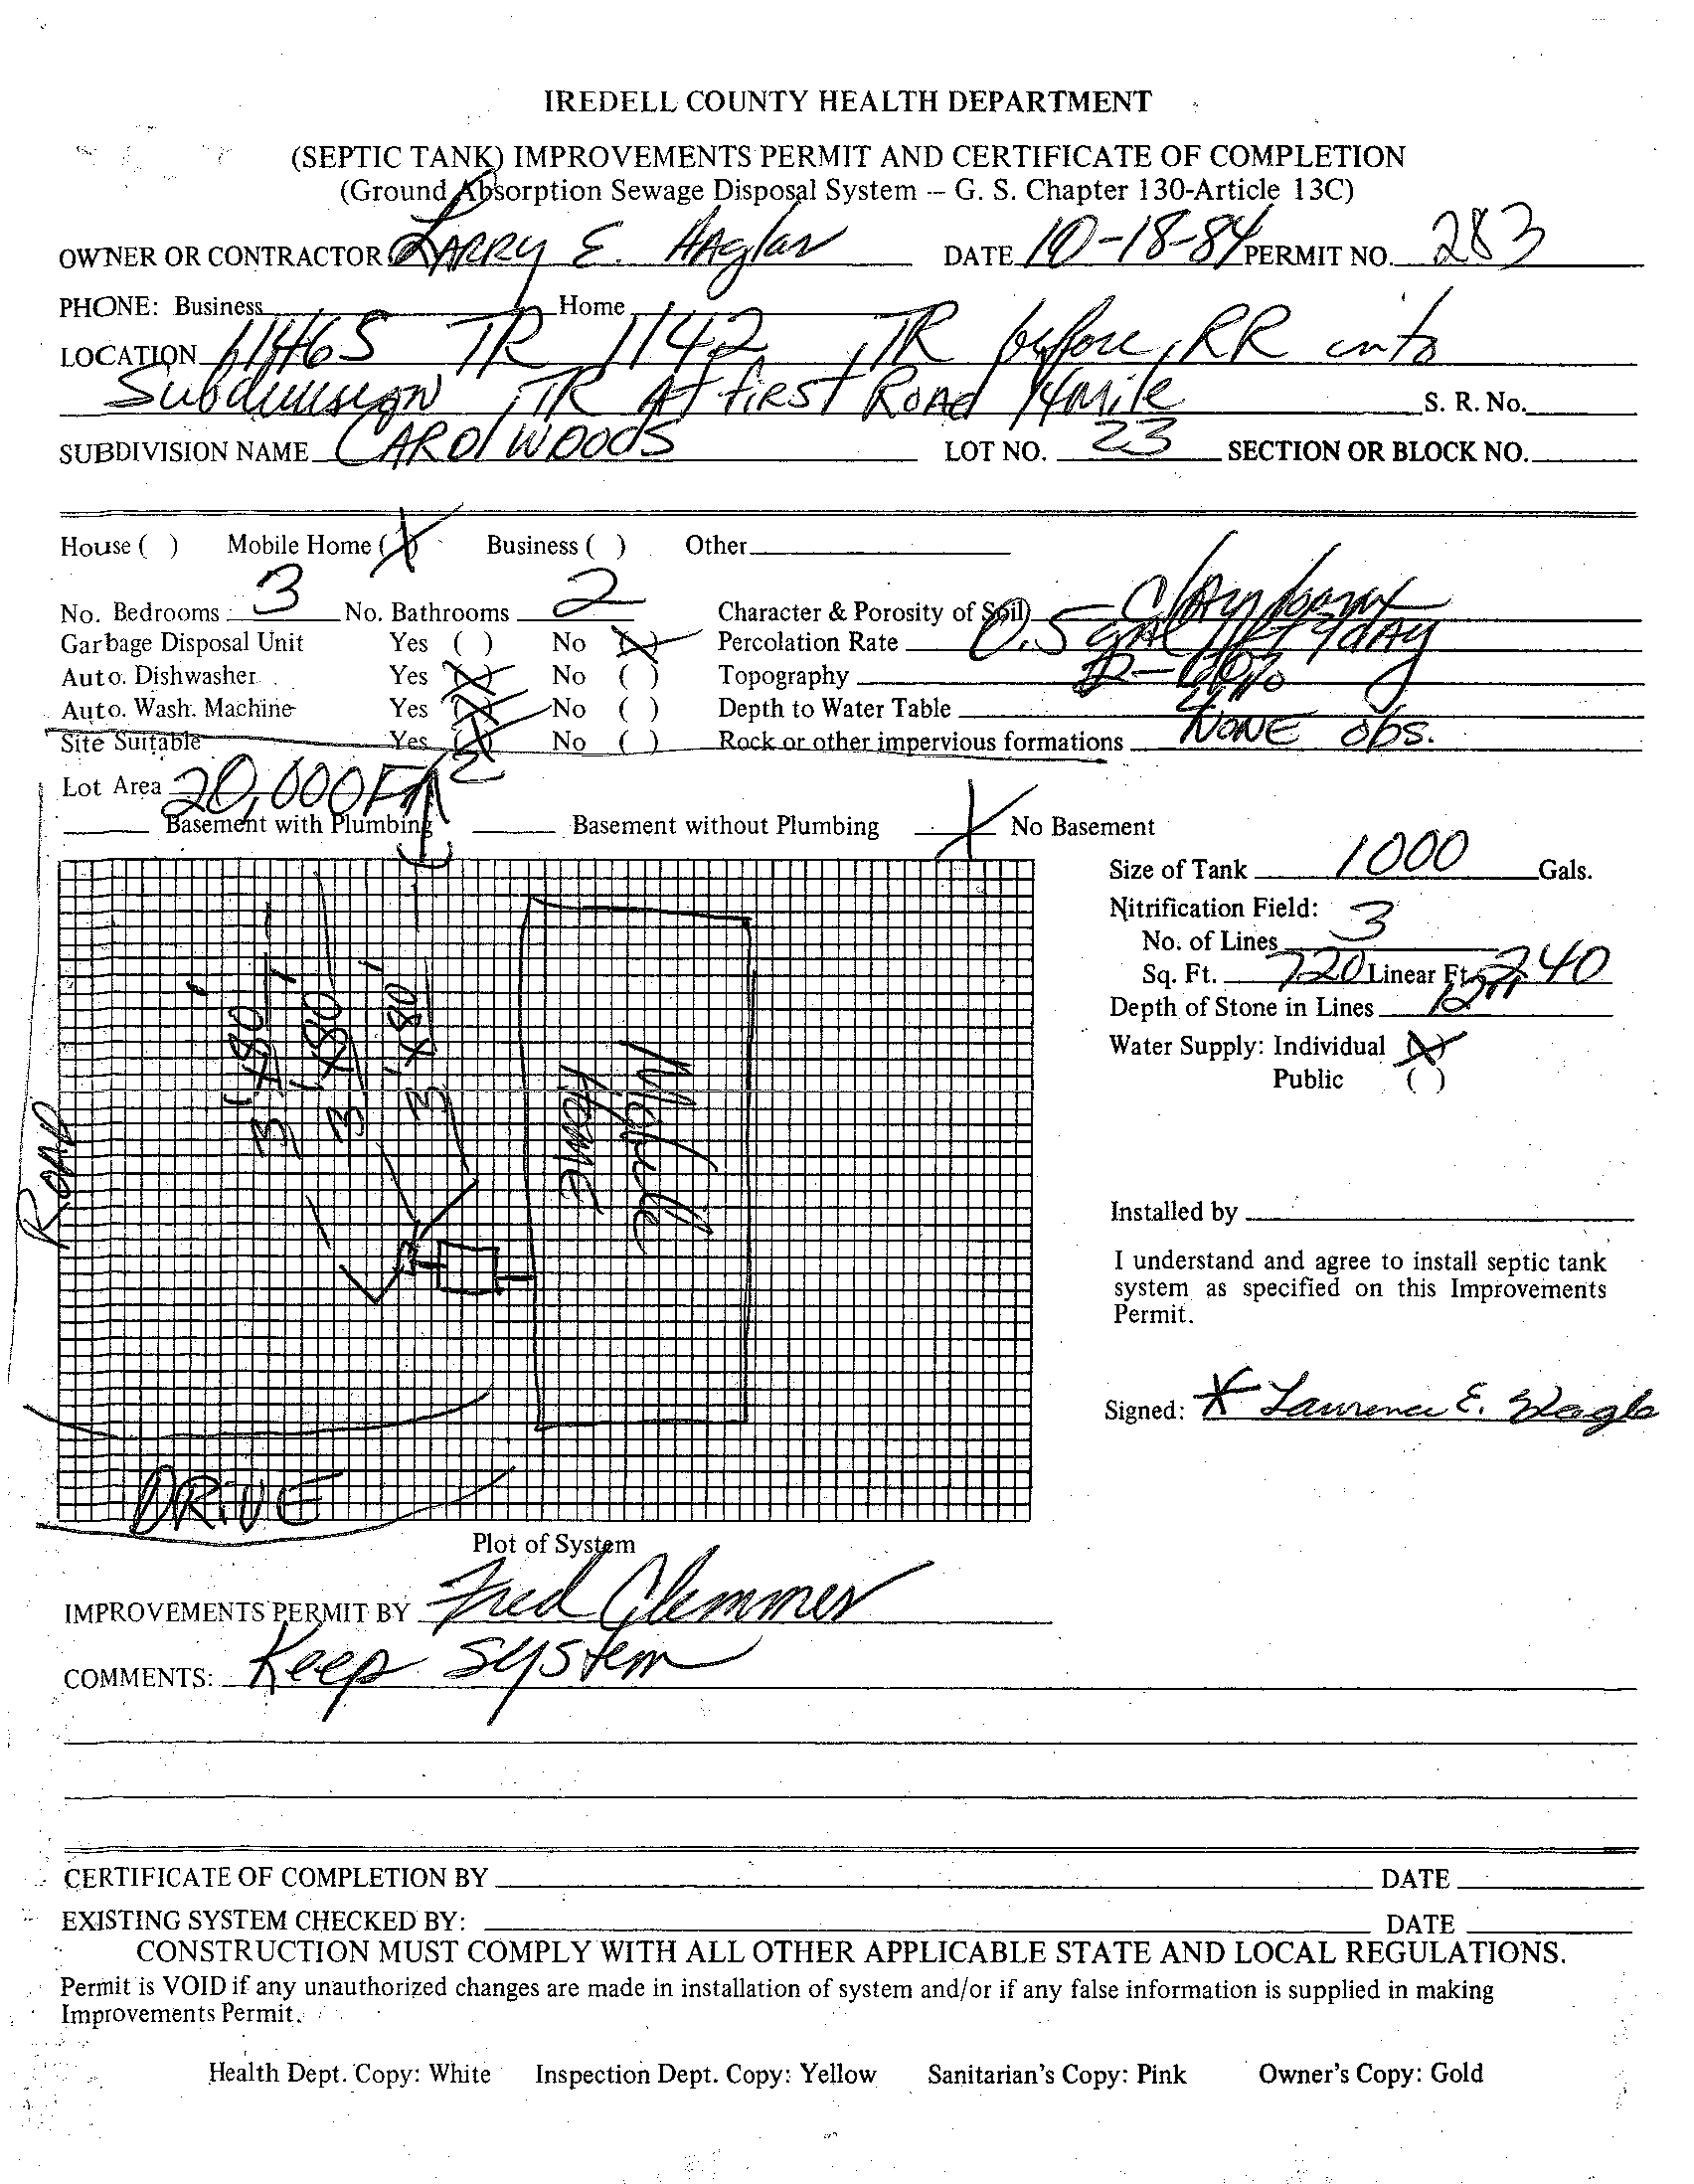 IREDELL COUNTY HEALTH DEPARTMENT
(SEPTIC TANK) IMPROVEMENTS PERMIT AND CERTIFICATE OF COMPLETION
(Ground Absorption Sewage Disposal System -- G. S. Chapter 130-Article 13C)
OWNER OR CONTRACTOR LARRY E. DATE 10-18-84 PERMIT NO. 283
PHONE: Business Home
LOCATION TR 1142 , TR before RR into
Subdivision , TR At first Road 1/4 mile S. R. No.
SUBDIVISION NAME CAROL WOODS LOT NO. 23 SECTION OR BLOCK NO.
House ( ) Mobile Home (X) Business ( ) Other
No. Bedrooms 3 No. Bathrooms 2 Character & Porosity of Soil) Clay loam
Garbage Disposal Unit Yes ( ) No (X) Percolation Rate 0.5 gal / ft² / day
Auto. Dishwasher Yes (X) No ( ) Topography
Auto. Wash. Machine Yes (X) No ( ) Depth to Water Table
Site Suitable Yes (X) No ( ) Rock or other impervious formations NONE obs.
Lot Area 20,000 Ft 2
Basement with Plumbing Basement without Plumbing X No Basement
Size of Tank 1000 Gals.
Nitrification Field:
No. of Lines 3
Sq. Ft. 720 Linear Ft. 240
Depth of Stone in Lines 12"
Water Supply: Individual (X)
Public ( )
ROAD
3'x80'
3'x80'
3'x80'
Mobile
Home
DRIVE
Installed by
I understand and agree to install septic tank
system as specified on this Improvements
Permit.
Signed: X Lawrence E.
Plot of System
IMPROVEMENTS PERMIT BY Fred Clemmer
COMMENTS: Keep system
CERTIFICATE OF COMPLETION BY DATE
EXISTING SYSTEM CHECKED BY: DATE
CONSTRUCTION MUST COMPLY WITH ALL OTHER APPLICABLE STATE AND LOCAL REGULATIONS.
Permit is VOID if any unauthorized changes are made in installation of system and/or if any false information is supplied in making
Improvements Permit.
Health Dept. Copy: White Inspection Dept. Copy: Yellow Sanitarian's Copy: Pink Owner's Copy: Gold